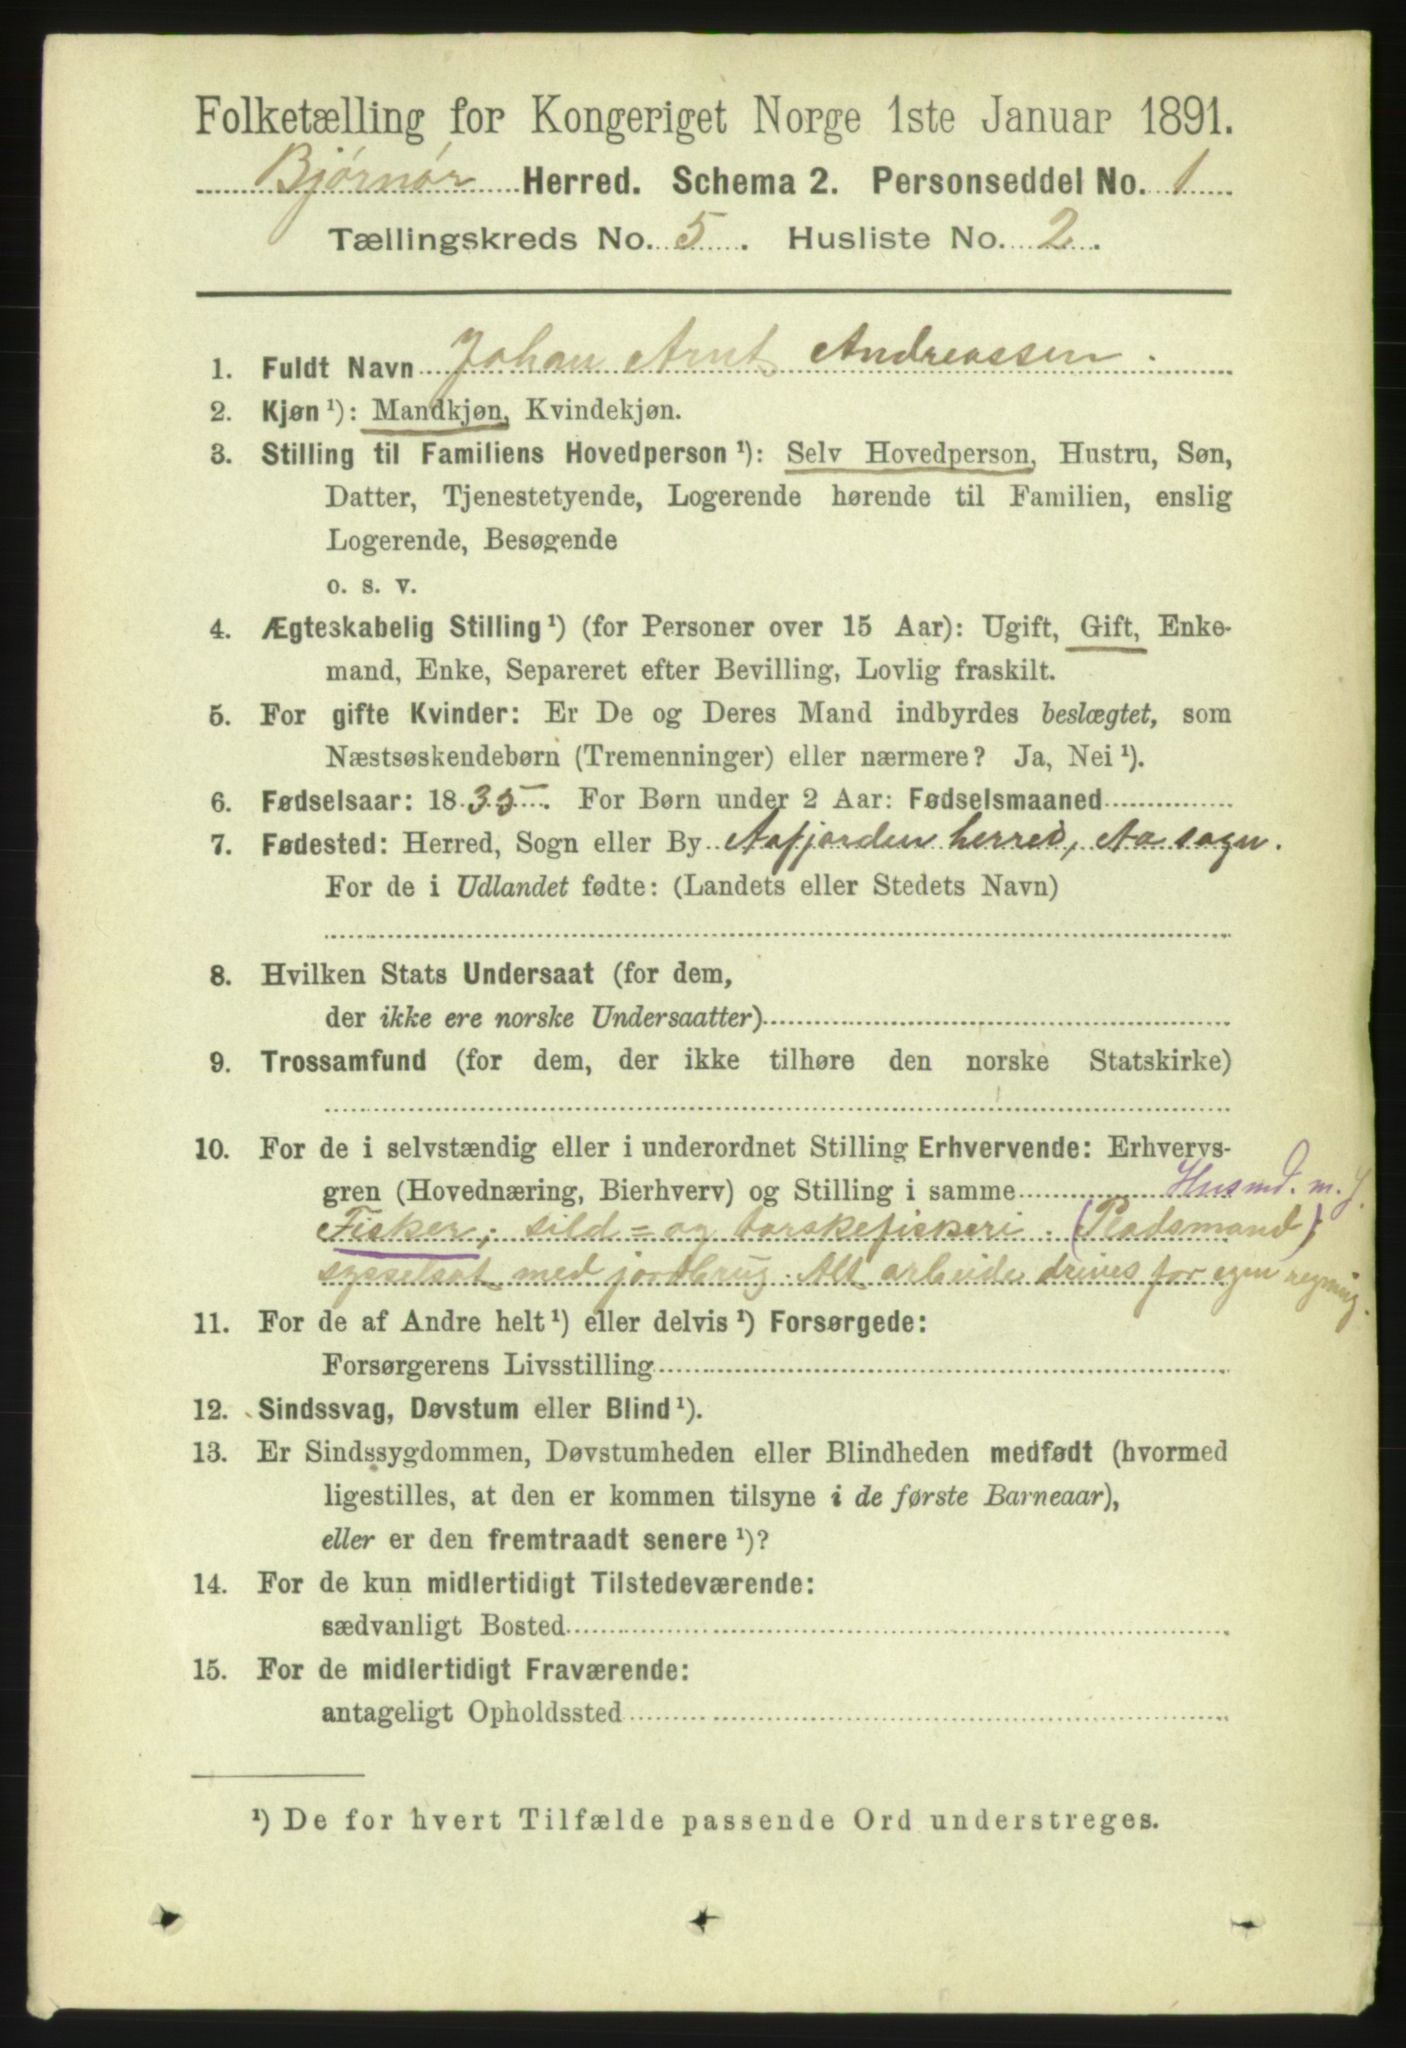 Folketælling for Kongeriget Norge 1ste Januar 1891.
Bjørnør Herred. Schema 2. Personseddel No. 1
Tællingskreds No. 5. Husliste No. 2.
1. Fuldt Navn Johan Arnt Andreassen.
2. Kjøn ¹): Mandkjøn, Kvindekjøn.
3. Stilling til Familiens Hovedperson ¹): Selv Hovedperson, Hustru, Søn,
Datter, Tjenestetyende, Logerende hørende til Familien, enslig
Logerende, Besøgende
o. s. v.
4. Ægteskabelig Stilling ¹) (for Personer over 15 Aar): Ugift, Gift, Enke-
mand, Enke, Separeret efter Bevilling, Lovlig fraskilt.
5. For gifte Kvinder: Er De og Deres Mand indbyrdes beslægtet, som
Næstsøskendebørn (Tremenninger) eller nærmere? Ja, Nei ¹).
6. Fødselsaar: 1835. For Børn under 2 Aar: Fødselsmaaned
7. Fødested: Herred, Sogn eller By Aafjorden herred, Aa sogn.
For de i Udlandet fødte: (Landets eller Stedets Navn)
8. Hvilken Stats Undersaat (for dem,
der ikke ere norske Undersaatter)
9. Trossamfund (for dem, der ikke tilhøre den norske Statskirke)
10. For de i selvstændig eller i underordnet Stilling Erhvervende: Erhvervs-
gren (Hovednæring, Bierhverv) og Stilling i samme Husmd. m. J.
Fisker; sild= og torskefiskeri. (Pladsmand);
sysselsat med jordbrug. Alt arbeide drives for egen regning.
11. For de af Andre helt ¹) eller delvis ¹) Forsørgede:
Forsørgerens Livsstilling
12. Sindssvag, Døvstum eller Blind ¹).
13. Er Sindssygdommen, Døvstumheden eller Blindheden medfødt (hvormed
ligestilles, at den er kommen tilsyne i de første Barneaar),
eller er den fremtraadt senere ¹)?
14. For de kun midlertidigt Tilstedeværende:
sædvanligt Bosted
15. For de midlertidigt Fraværende:
antageligt Opholdssted
¹) De for hvert Tilfælde passende Ord understreges.